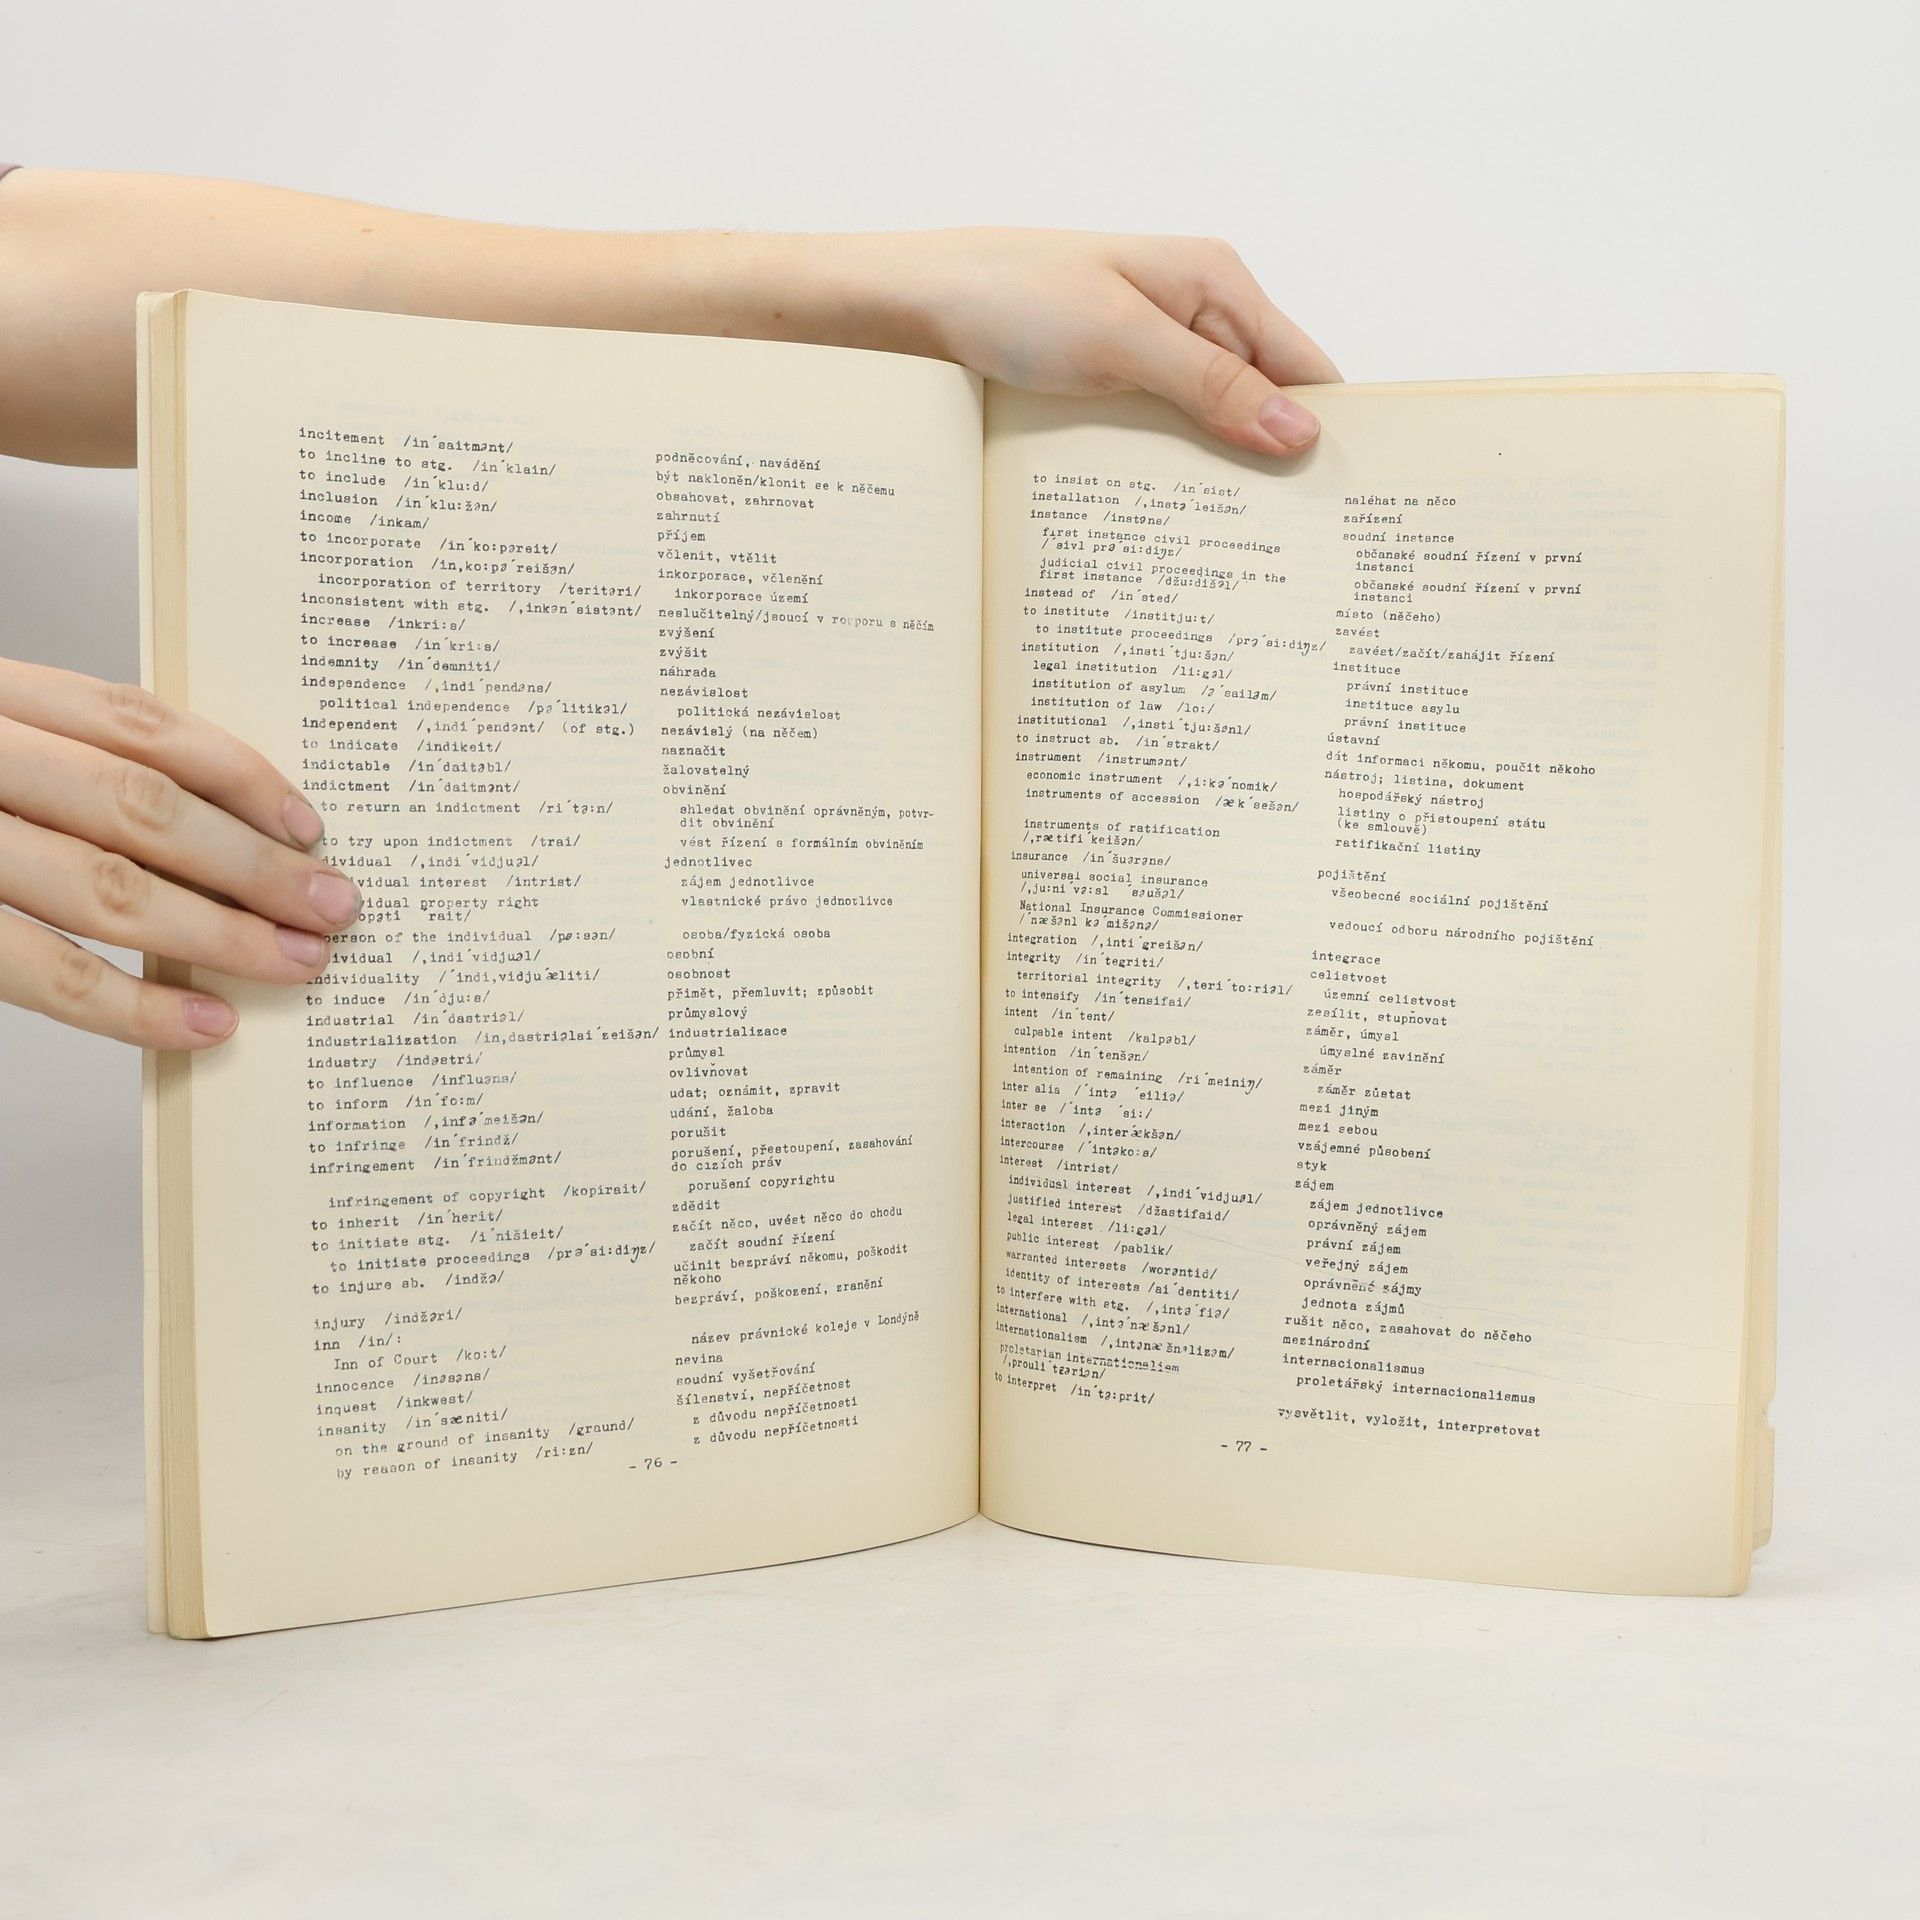 incitement /in´saitmənt/ podněcování, navádění
to incline to stg. /in´klain/ být nakloněn/klonit se k něčemu
to include /in´klu:d/ obsahovat, zahrnovat
inclusion /in´klu:žən/ zahrnutí
income /inkam/ příjem
to incorporate /in´ko:pəreit/ včlenit, vtělit
incorporation /in,ko:pə´reišən/ inkorporace, včlenění
incorporation of territory /teritəri/ inkorporace území
inconsistent with stg. /,inkən´sistənt/ neslučitelný/jsoucí v rozporu s něčím
increase /inkri:s/ zvýšení
to increase /in´kri:s/ zvýšit
indemnity /in´demniti/ náhrada
independence /,indi´pendəns/ nezávislost
political independence /pə´litikəl/ politická nezávislost
independent /,indi´pendənt/ (of stg.) nezávislý (na něčem)
to indicate /indikeit/ naznačit
indictable /in´daitəbl/ žalovatelný
indictment /in´daitmənt/ obvinění
to return an indictment /ri´tə:n/ shledat obvinění oprávněným, potvr-
dit obvinění
to try upon indictment /trai/ vést řízení s formálním obviněním
dividual /,indi´vidjuəl/ jednotlivec
vidual interest /intrist/ zájem jednotlivce
vidual property right vlastnické právo jednotlivce
opəti ´rait/
person of the individual /pə:sən/ osoba/fyzická osoba
ividual /,indi´vidjuəl/ osobní
individuality /´indi,vidju´æliti/ osobnost
to induce /in´dju:s/ přimět, přemluvit; způsobit
industrial /in´dastriəl/ průmyslový
industrialization /in,dastriəlai´zeišən/ industrializace
industry /indəstri/ průmysl
to influence /influəns/ ovlivňovat
to inform /in´fo:m/ udat; oznámit, zpravit
information /,infə´meišən/ udání, žaloba
to infringe /in´frindž/ porušit
infringement /in´frindžmənt/ porušení, přestoupení, zasahování
do cizích práv
infringement of copyright /kopirait/ porušení copyrightu
to inherit /in´herit/ zdědit
to initiate stg. /i´nišieit/ začít něco, uvést něco do chodu
to initiate proceedings /prə´si:diŋz/ začít soudní řízení
to injure sb. /indžə/ učinit bezpráví někomu, poškodit
někoho
injury /indžəri/ bezpráví, poškození, zranění
inn /in/:
Inn of Court /ko:t/ název právnické koleje v Londýně
innocence /inəsəns/ nevina
inquest /inkwest/ soudní vyšetřování
insanity /in´sæniti/ šílenství, nepříčetnost
on the ground of insanity /graund/ z důvodu nepříčetnosti
by reason of insanity /ri:zn/ z důvodu nepříčetnosti
- 76 -
to insist on stg. /in´sist/ naléhat na něco
installation /,instə´leišən/ zařízení
instance /instəns/ soudní instance
first instance civil proceedings občanské soudní řízení v první
/´sivl prə´si:diŋz/ instanci
judicial civil proceedings in the občanské soudní řízení v první
first instance /džu:dišəl/ instanci
instead of /in´sted/ místo (něčeho)
to institute /institju:t/ zavést
to institute proceedings /prə´si:diŋz/ zavést/začít/zahájit řízení
institution /,insti´tju:šən/ instituce
legal institution /li:gəl/ právní instituce
institution of asylum /ə´sailəm/ instituce asylu
institution of law /lo:/ právní instituce
institutional /,insti´tju:šənl/ ústavní
to instruct sb. /in´strakt/ dát informaci někomu, poučit někoho
instrument /instrumənt/ nástroj; listina, dokument
economic instrument /,i:kə´nomik/ hospodářský nástroj
instruments of accession /æk´sešən/ listiny o přistoupení státu
(ke smlouvě)
instruments of ratification ratifikační listiny
/,rætifi´keišən/
insurance /in´šuərəns/ pojištění
universal social insurance všeobecné sociální pojištění
/,ju:ni´və:sl ´səušəl/
National Insurance Commissioner vedoucí odboru národního pojištění
/´næšənl kə´mišənə/
integration /,inti´greišən/ integrace
integrity /in´tegriti/ celistvost
territorial integrity /,teri´to:riəl/ územní celistvost
to intensify /in´tensifai/ zesílit, stupňovat
intent /in´tent/ záměr, úmysl
culpable intent /kalpəbl/ úmyslné zavinění
intention /in´tenšən/ záměr
intention of remaining /ri´meiniŋ/ záměr zůstat
inter alia /´intə ´eiliə/ mezi jiným
inter se /´intə ´si:/ mezi sebou
interaction /,inter´ækšən/ vzájemné působení
intercourse /´intəko:s/ styk
interest /intrist/ zájem
individual interest /,indi´vidjuəl/ zájem jednotlivce
justified interest /džastifaid/ oprávněný zájem
legal interest /li:gəl/ právní zájem
public interest /pablik/ veřejný zájem
warranted interests /worəntid/ oprávněné zájmy
identity of interests /ai´dentiti/ jednota zájmů
to interfere with stg. /,intə´fiə/ rušit něco, zasahovat do něčeho
international /,intə´næšənl/ mezinárodní
internationalism /,intənæšnəlizəm/ internacionalismus
proletarian internationalism proletářský internacionalismus
/,prouli´tgəriən/
to interpret /in´tə:prit/ vysvětlit, vyložit, interpretovat
- 77 -